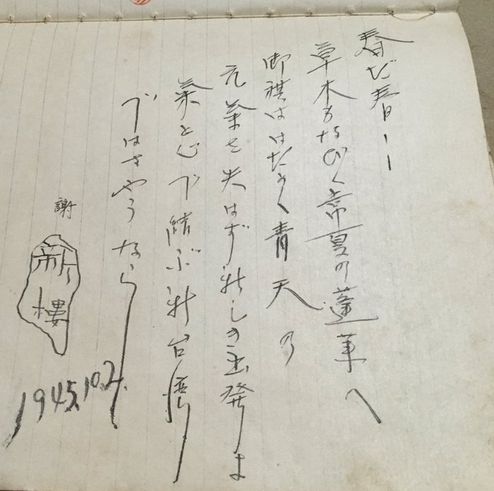 春だ春!!
草木もなびく常夏の蓬莱へ
御旗ははためく青天の
を失はず新しき出発は
と心で結ぶ新台湾
ではさやうなら
謝
新樓
1945.10.2.